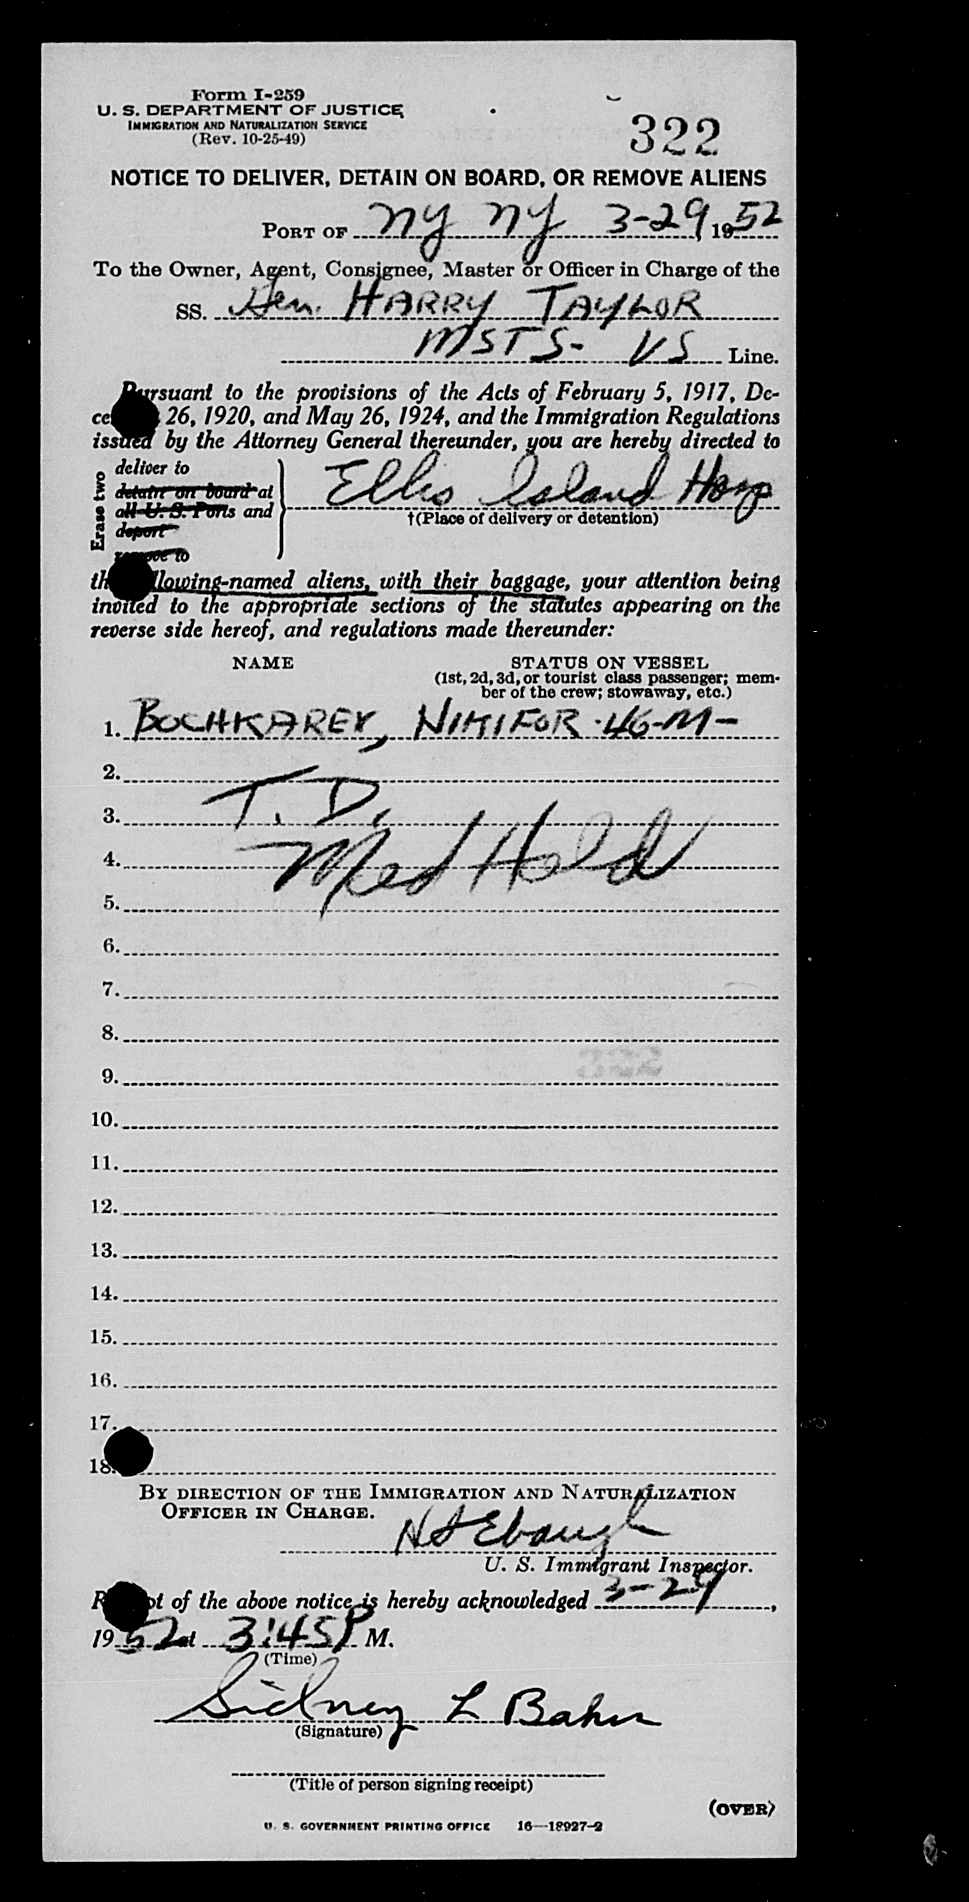 Form I-259
U. S. DEPARTMENT OF JUSTICE
IMMIGRATION AND NATURALIZATION SERVICE
(Rev. 10-25-49)
322
NOTICE TO DELIVER, DETAIN ON BOARD, OR REMOVE ALIENS
PORT OF NY NY 3-29, 1952
To the Owner, Agent, Consignee, Master or Officer in Charge of the
SS. Gen. HARRY TAYLOR
MSTS- US Line.
Pursuant to the provisions of the Acts of February 5, 1917, De-
ce 26, 1920, and May 26, 1924, and the Immigration Regulations
issued by the Attorney General thereunder, you are hereby directed to
Erase two
deliver to
detain on board at
all U. S. Ports and
deport
remove to
Ellis Island Hosp
†(Place of delivery or detention)
th llowing-named aliens, with their baggage, your attention being
invited to the appropriate sections of the statutes appearing on the
reverse side hereof, and regulations made thereunder:
NAME STATUS ON VESSEL
(1st, 2d, 3d, or tourist class passenger; mem-
ber of the crew; stowaway, etc.)
1. BOCHKAREV, NIKIFOR -46-M-
2.
T. D.
3.
4. Med Hold
5.
6.
7.
8.
9.
10.
11.
12.
13.
14.
15.
16.
17.
18.
BY DIRECTION OF THE IMMIGRATION AND NATURALIZATION
OFFICER IN CHARGE.
Ebaugh
U. S. Immigrant Inspector.
R pt of the above notice is hereby acknowledged 3-29,
1952 at 3:45 P M.
(Time)
Sidney L
(Signature)
(Title of person signing receipt)
(OVER)
U. S. GOVERNMENT PRINTING OFFICE 16—18927-2